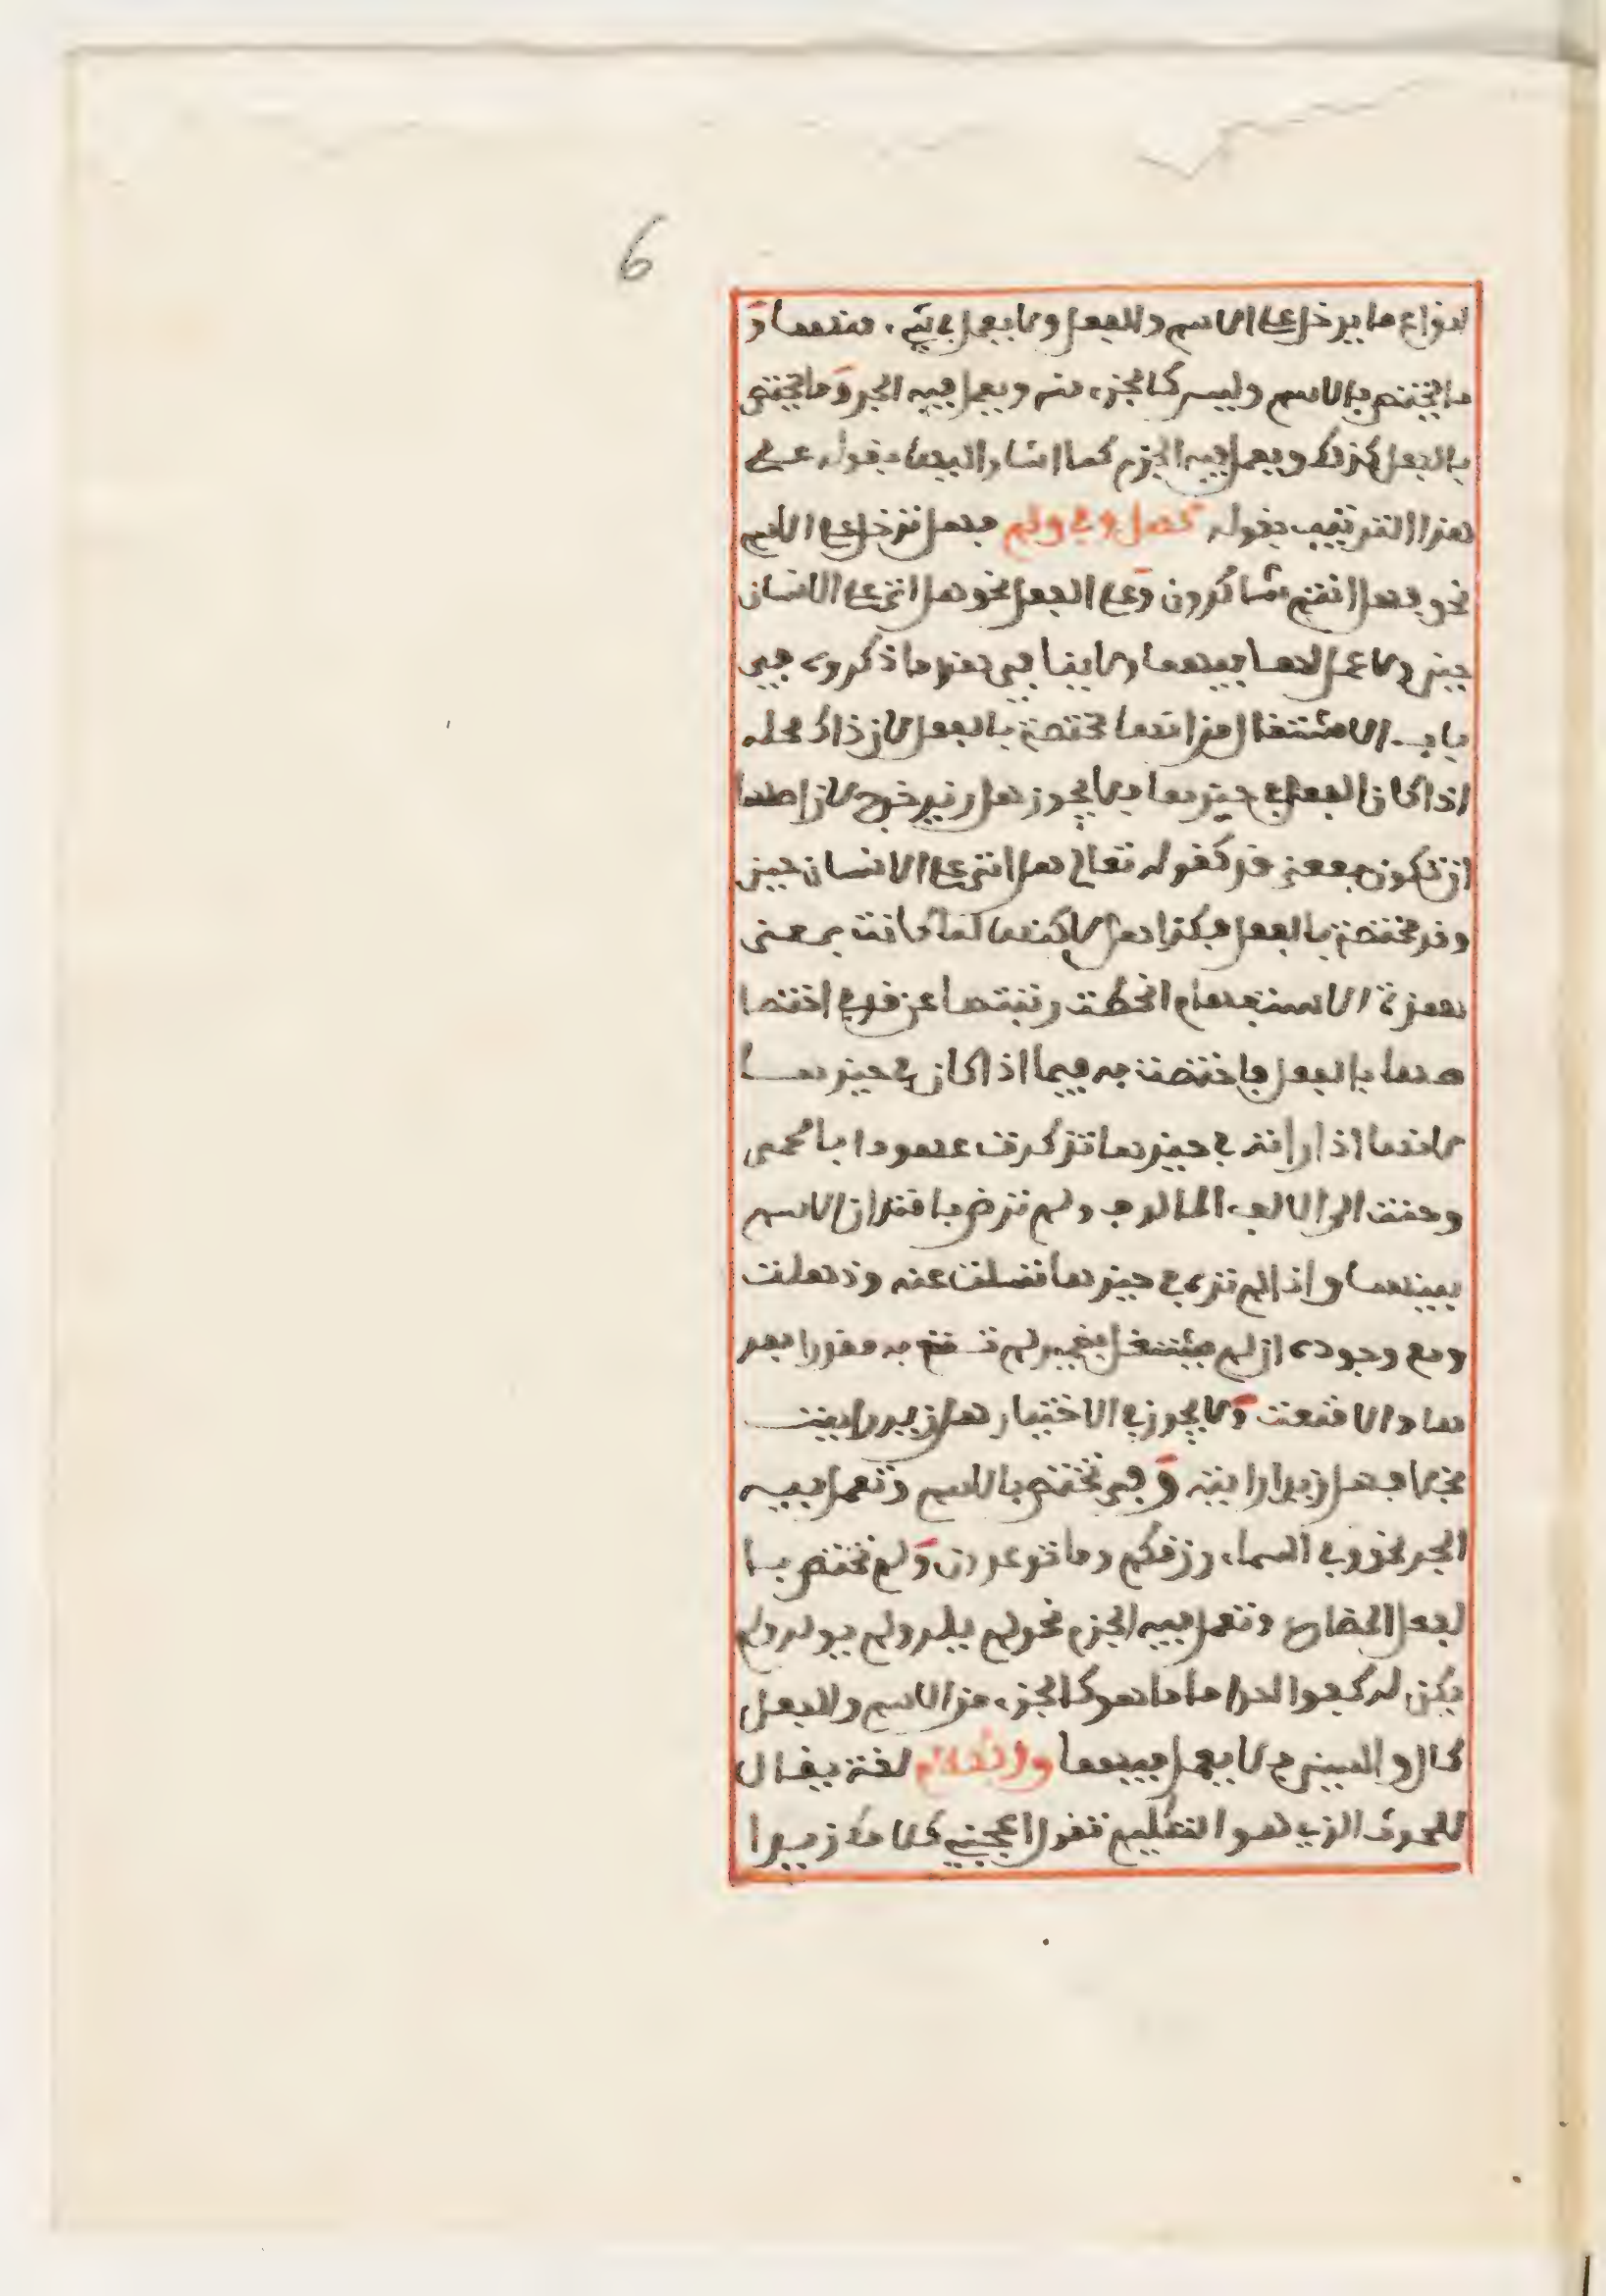 6
انواع ما يدخل على الاسم والفعل ولا يعمل في شيء منهما و
ما يختص بالاسم وليس كالجزء منه ويعمل فيه الجر وما يختص
بالفعل كذلك ويعمل فيه الجزم كما اشار اليها بقوله على
هذا الترتيب بقوله كهل وفي ولم فهل تدخل على الاسم
نحو فهل انتم شاكرون وعلى الفعل نحو هل اتى على الانسان
حين ولا عمل لها فيهما ولا ينافي هذا ما ذكروه في
باب الاشتغال من انها مختصة بالفعل لان ذاك محله
اذا كان الفعل في حيزها فلا يجوز هل زيد خرج لان اصلها
ان تكون بمعنى قد كقوله تعالى هل اتى على الانسان حين
وقد مختصة بالفعل فكذا هل لاكنها لما كانت بمعنى
همزة الاستفهام انحطت رتبتها عن قد في اختصا
صها بالفعل فاختصت به فيما اذا كان في حيزها
لانها اذا راته في حيزها تذكرت عهودا بالحمى
وحنت الى الالف المالوف ولم ترض باقتران الاسم
بينهما واذا لم تره في حيزها تسلت عنه وذهلت
ومع وجوده ان لم يشتغل بضمير لم تقنع به مقدرا بعد
ها والا قنعت ولا يجوز في الاختيار هل زيدا رايت
بخلاف هل زيدا رايته وفي تختص بالاسم وتعمل فيه
الجر نحو وفي السماء رزقكم وما توعدون ولم تختص با
لفعل المضارع وتعمل فيه الجزم نحو لم يلد ولم يولد ولم
يكن له كفوا احد اما ما هو كالجزء من الاسم والفعل
كال والسين فلا يعمل فيهما والكلام لغة يقال
للحدث الذي هو التكليم تقول اعجبني كلامك زيدا